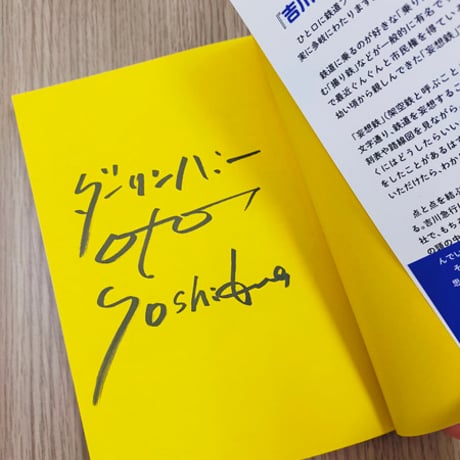 ダーリンハニー
oto
Yoshikawa
『吉川
ひと口に鉄道フ
実に多岐にわたります。
鉄道に乗るのが好きな「乗り
む「撮り鉄」などが一般的に有名で
で最近ぐんぐんと市民権を得てい
幼い頃から親しんできた「妄想鉄」
「妄想鉄」(架空鉄と呼ぶこと
文字通り、鉄道を妄想するこ
刻表や路線図を見ながら、
くにはどうしたらいい
をしたことがあるは
いただけたら、わか
点と点を結ぶ
る。吉川急行
社で、もち
の頭の中
んでい
そ
思